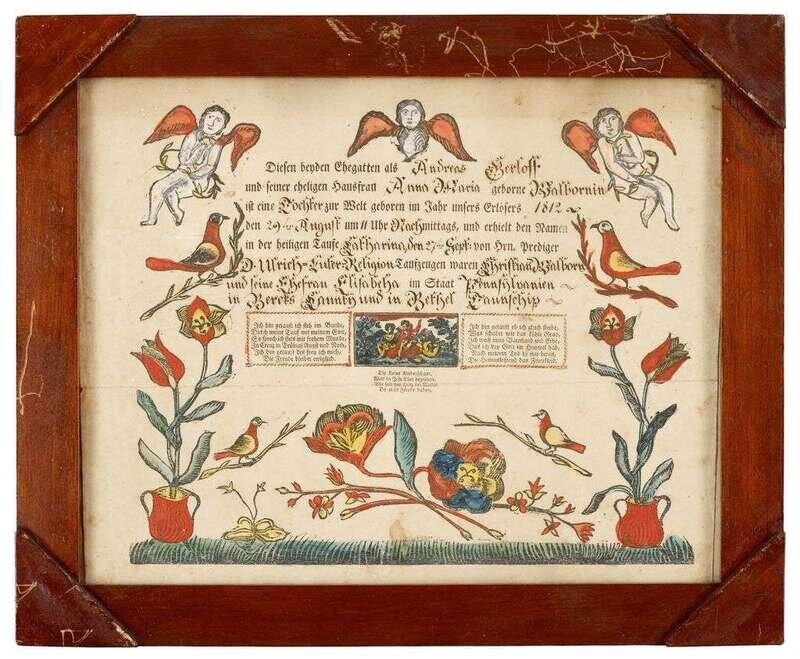 Diesen beyden Ehegatten als Andreas Gerloff
und seiner ehelichen Hausfrau Anna Maria geborne Walbornin
ist eine Tochter zur Welt geboren im Jahr unsers Erlosers 1812
den 29ten August um 11 Uhr Nachmittags, und erhielt den Namen
in der heiligen Taufe Catharina, den 27ten Sept. von Hrn. Prediger
D. Ulrich Luter Religion Taufzeugen waren Christian Walborn
und seine Ehefrau Elisabetha im Staat Pennsylvanien
in Bercks Caunty und in Bethel Taunschip
Ich bin getauft ich steh im Bunde,
Durch meine Tauf mit meinem Gott,
So sprech ich stets mit frohem Munde,
In Creuz in Trübsal Angst und Noth,
Ich bin getauft des freu ich mich,
Die Freude bleibet ewiglich.
Ich bin getauft ob ich gleich sterbe,
Was schadet mir das kühle Grab,
Ich weiß mein Vaterland und Erbe,
Das ich bey Gott im Himmel hab,
Nach meinem Tod ist mir bereit,
Des Himmels Freud das Feyerkleid.
Die kleine Kinderschaar,